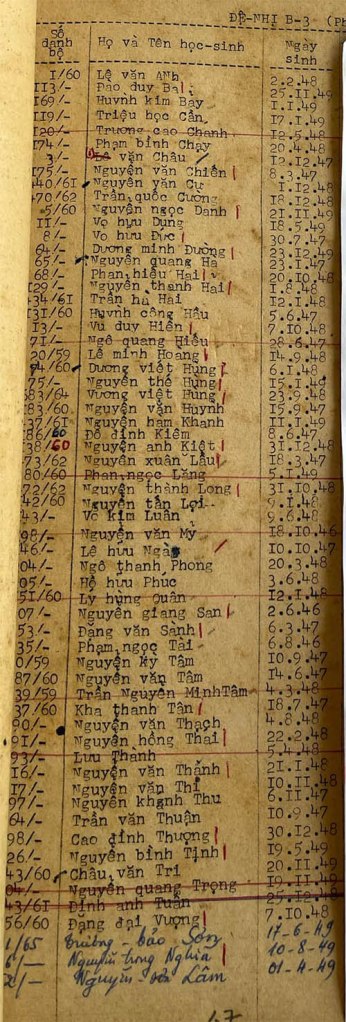 ĐỆ-NHỊ B-3
Số danh bộ Họ và Tên học-sinh Ngày sinh
1/60 Lê văn ANh 2.2.48
113/- Đào duy Bài 25.11.49
169/- Huỳnh kim Bay 1.1.49
119/- Triệu học Cần 17.1.49
120/- Trương cao Chanh 12.5.48
174/- Phạm bỉnh Chạy 20.4.48
3/- Lê văn Châu 12.12.47
175/- Nguyễn văn Chiến 8.3.47
40/61 Nguyễn văn Cư 1.12.48
70/62 Trần quốc Cường 18.12.48
5/60 Nguyễn ngọc Danh 21.11.49
11/- Võ hưu Dụng 18.5.49
8/- Võ hưu Đức 30.7.47
64/- Dương minh Đường 23.12.49
65/- Nguyễn quang Hà 23.1.47
68/- Phan hiếu Hai 20.10.48
129/- Nguyễn thanh Hai 1.8.48
434/61 Trần hà Hải 12.1.48
131/60 Huỳnh công Hậu 5.6.47
13/- Vũ duy Hiền 7.10.48
71/- Ngô quang Hiếu 28.6.47
20/59 Lê minh Hoàng 14.9.48
/60 Dương việt Hưng 6.1.48
75/- Nguyễn thế Hưng 15.1.49
583/64 Vương việt Hùng 23.9.48
83/60 Nguyễn văn Huỳnh 15.9.47
37/61 Nguyễn hàm Khanh 11.1.49
86/60 Đỗ đình Kiêm 8.6.47
38/60 Nguyễn anh Kiệt 31.12.48
73/62 Nguyễn xuân Lâu 18.3.47
80/60 Phan ngọc Lăng 5.1.49
72/62 Nguyễn thành Long 31.10.48
42/60 Nguyễn tấn Lợi 9.1.48
43/- Võ kim Luân 9.6.48
98/- Nguyễn văn Mỹ 18.10.46
46/- Lê hưu Ngà 10.10.47
04/- Ngô thanh Phong 20.3.48
05/- Hồ hưu Phúc 3.6.48
51/60 Lý hùng Quân 12.1.48
07/- Nguyễn giang San 2.6.46
53/- Đặng văn Sanh 6.3.47
35/- Phạm ngọc Tài 6.8.46
0/59 Nguyễn kỳ Tâm 10.9.47
87/60 Nguyễn văn Tâm 14.6.47
39/59 Trần Nguyên MinhTâm 4.3.48
37/60 Kha thanh Tân 18.7.47
90/- Nguyễn văn Thạch 4.8.48
91/- Nguyễn hồng Thai 22.2.48
93/- Lưu Thành 5.4.48
16/- Nguyễn văn Thành 21.1.48
17/- Nguyễn văn Thi 10.11.48
97/- Nguyễn khanh Thu 6.11.47
64/- Trần văn Thuận 10.9.47
98/- Cao đình Thượng 30.12.48
26/- Nguyễn bỉnh Tịnh 19.5.49
43/60 Châu văn Tri 20.11.49
04/- Nguyễn quang Trọng 19.11.49
43/61 Đinh anh Tuấn 25.12.48
56/60 Đặng đại Vượng 7.10.48
1/65 Trương - bảo Sơn 17-6-49
6/- Nguyễn trọng Nghĩa 10-8-49
2/- Nguyễn Lâm 01-4-49
47